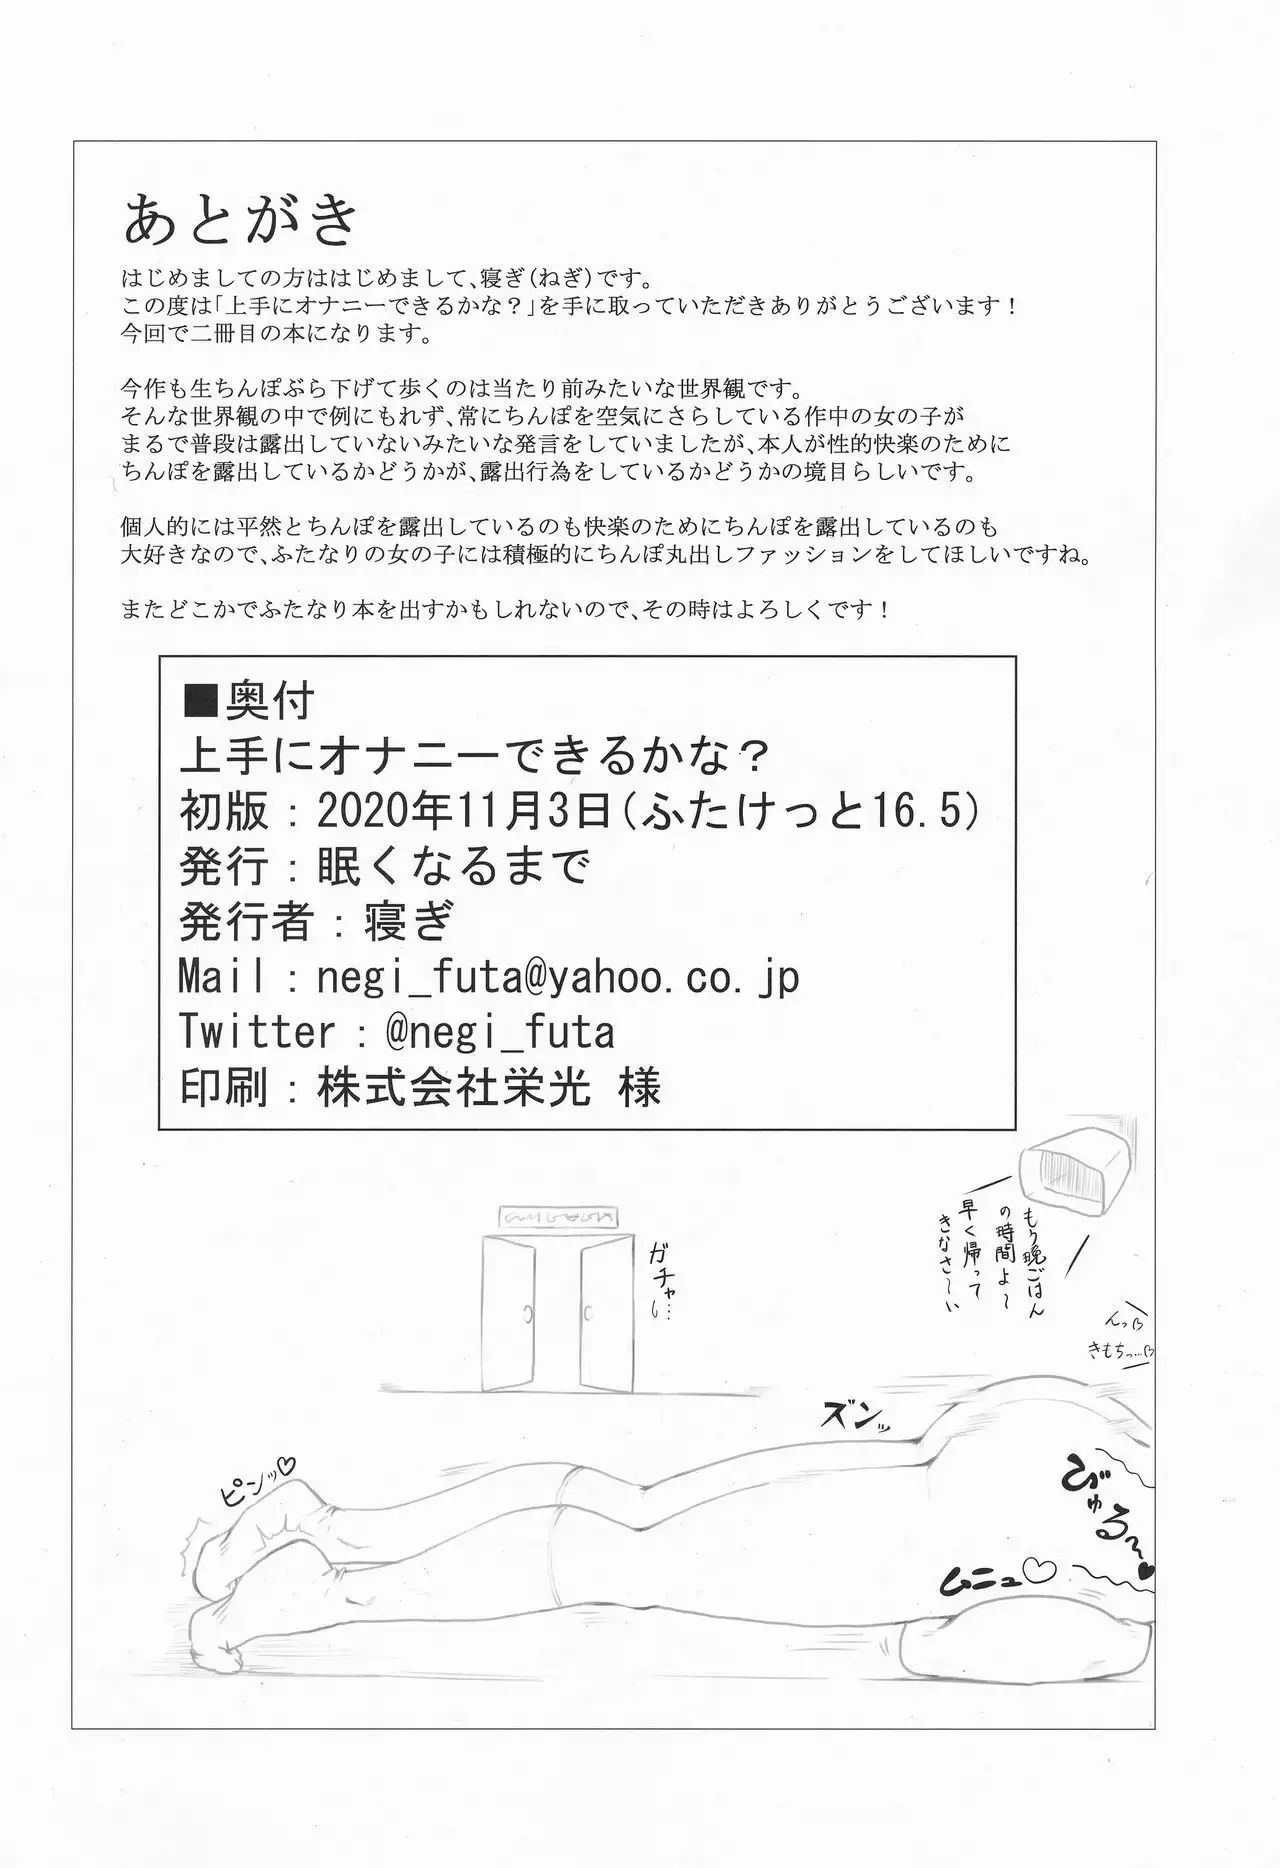 あとがき
はじめましての方ははじめまして、寝ぎ(ねぎ)です。
この度は「上手にオナニーできるかな？」を手に取っていただきありがとうございます！
今回で二冊目の本になります。
今作も生ちんぽぶら下げて歩くのは当たり前みたいな世界観です。
そんな世界観の中で例にもれず、常にちんぽを空気にさらしている作中の女の子が
まるで普段は露出していないみたいな発言をしていましたが、本人が性的快楽のために
ちんぽを露出しているかどうかが、露出行為をしているかどうかの境目らしいです。
個人的には平然とちんぽを露出しているのも快楽のためにちんぽを露出しているのも
大好きなので、ふたなりの女の子には積極的にちんぽ丸出しファッションをしてほしいですね。
またどこかでふたなり本を出すかもしれないので、その時はよろしくです！
■奥付
上手にオナニーできるかな？
初版：2020年11月3日(ふたけっと16.5)
発行：眠くなるまで
発行者：寝ぎ
Mail：negi_futa@yahoo.co.jp
Twitter：@negi_futa
印刷：株式会社栄光 様
もう晩ごはん
の時間よ～
早く帰って
きなさ～い
ガチャッ…
んっ♡
きもちっ…♡
ズンッ
ピンッ♡
びゅる～♥
ムニュ♡